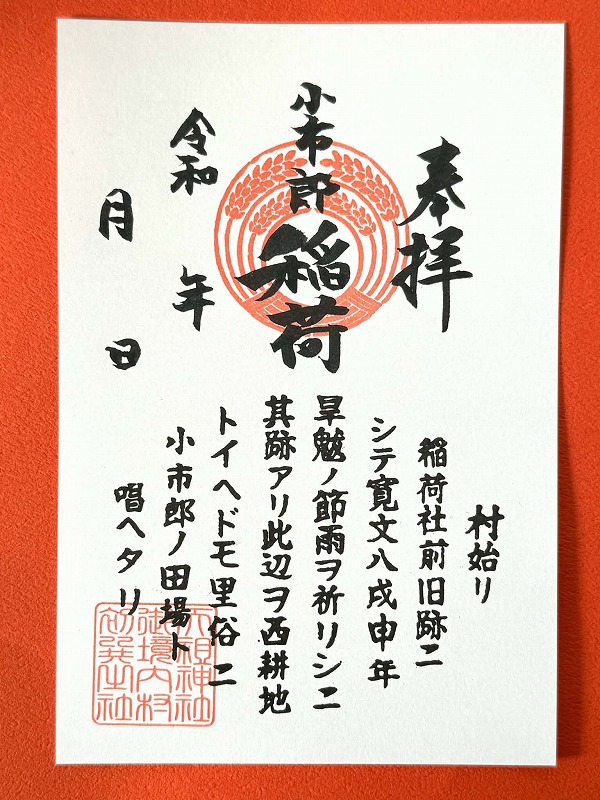 奉拝
小市郎
稲荷
令和　年
月　日
村始リ
稲荷社前旧跡ニ
シテ寛文八戌申年
旱魃ノ節雨ヲ祈リシニ
其跡アリ此辺ヲ西耕地
トイヘドモ里俗ニ
小市郎ノ田場ト
唱ヘタリ
神社
御境内村